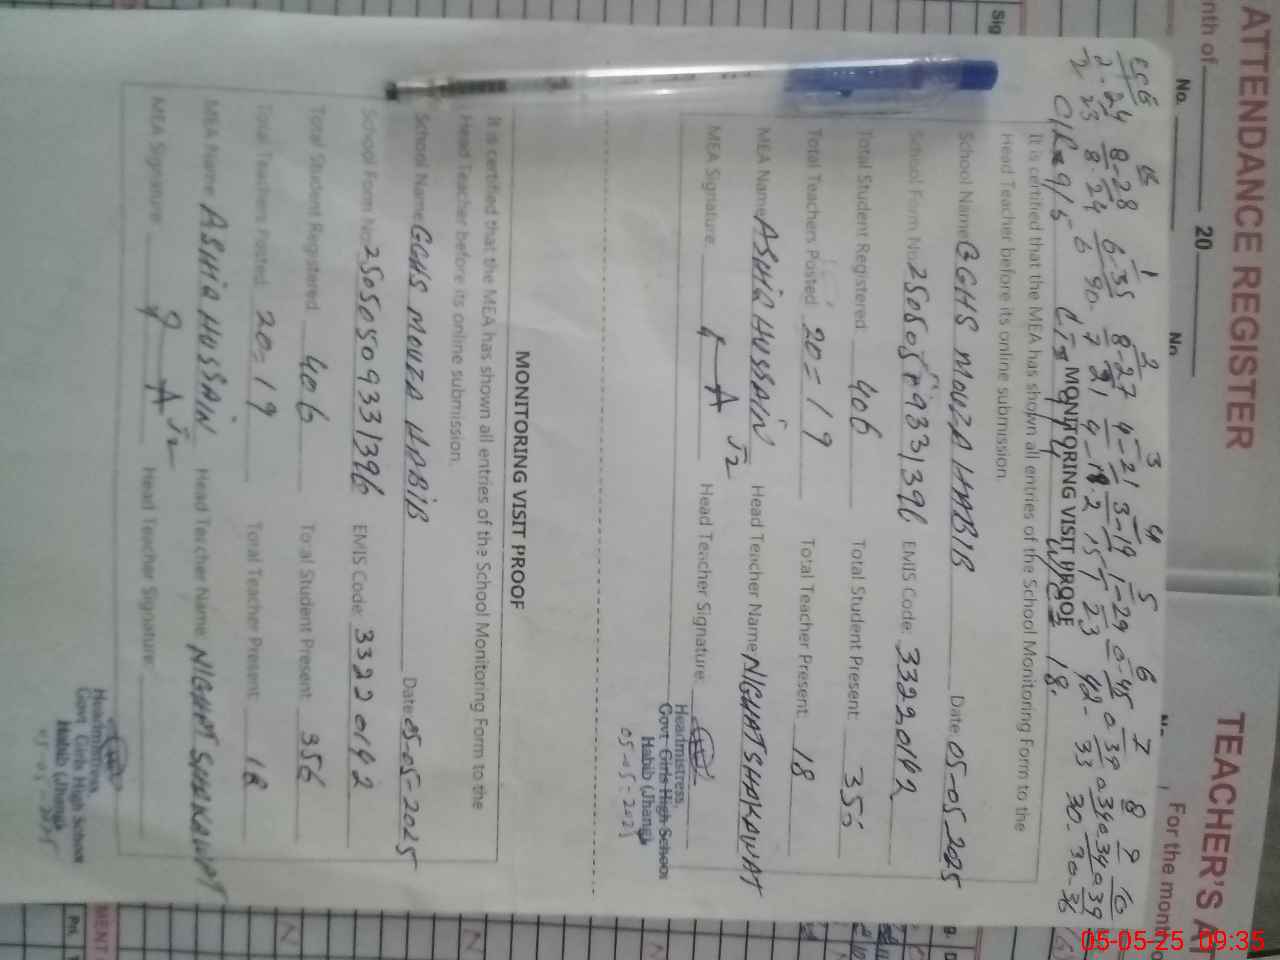 ATTENDANCE REGISTER
TEACHER'S AT
nth of 20
For the mont
No.
No
Sig
ECE K 1 2 3 4 5 6 7 8 9 10
2-24 8-28 6-35 8-27 4-21 3-19 1-29 0-45 0-39 0-39 0-34 0-39
2 23 8-24 6
MONITORING VISIT PROOF
It is certified that the MEA has shown all entries of the School Monitoring Form to the
Head Teacher before its online submission.
School Name GGHS MOUZA HABIB Date 05-05-2025
School Form No EMIS Code: 33220142
Total Student Registered: 406 Total Student Present:
Total Teachers Posted 20=19 Total Teacher Present: 18
MEA Name ASHIQ HUSSAIN Head Teacher Name NIGHAT SHAKAWAT
MEA Signature: Head Teacher Signature:
Headmistress,
Govt Girls High School
Habib (Jhang)
05-05-2025
MONITORING VISIT PROOF
It is certified that the MEA has shown all entries of the School Monitoring Form to the
Head Teacher before its online submission.
School Name GGHS MOUZA HABIB Date 05-05-2025
School Form No 25050509331396 EMIS Code: 33220142
Total Student Registered 406 Total Student Present: 356
Total Teachers Posted 20=19 Total Teacher Present: 18
MEA Name ASHIQ HUSSAIN Head Teacher Name: NIGHAT SHAKAWAT
MEA Signature: Head Teacher Signature:
Headmistress,
Govt Girls High School
Habib (Jhang)
05-05-2025
05-05-25 09:35